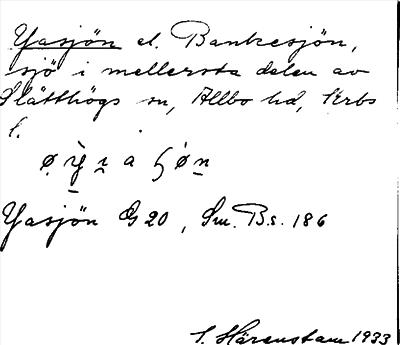 Yasjön el. Bankesjön,
sjö i mellersta delen av
Slätthögs sn, Allbo hd, Krbs
l.
Yasjön G 20, Sm. B.s. 186
S. Härenstam 1933